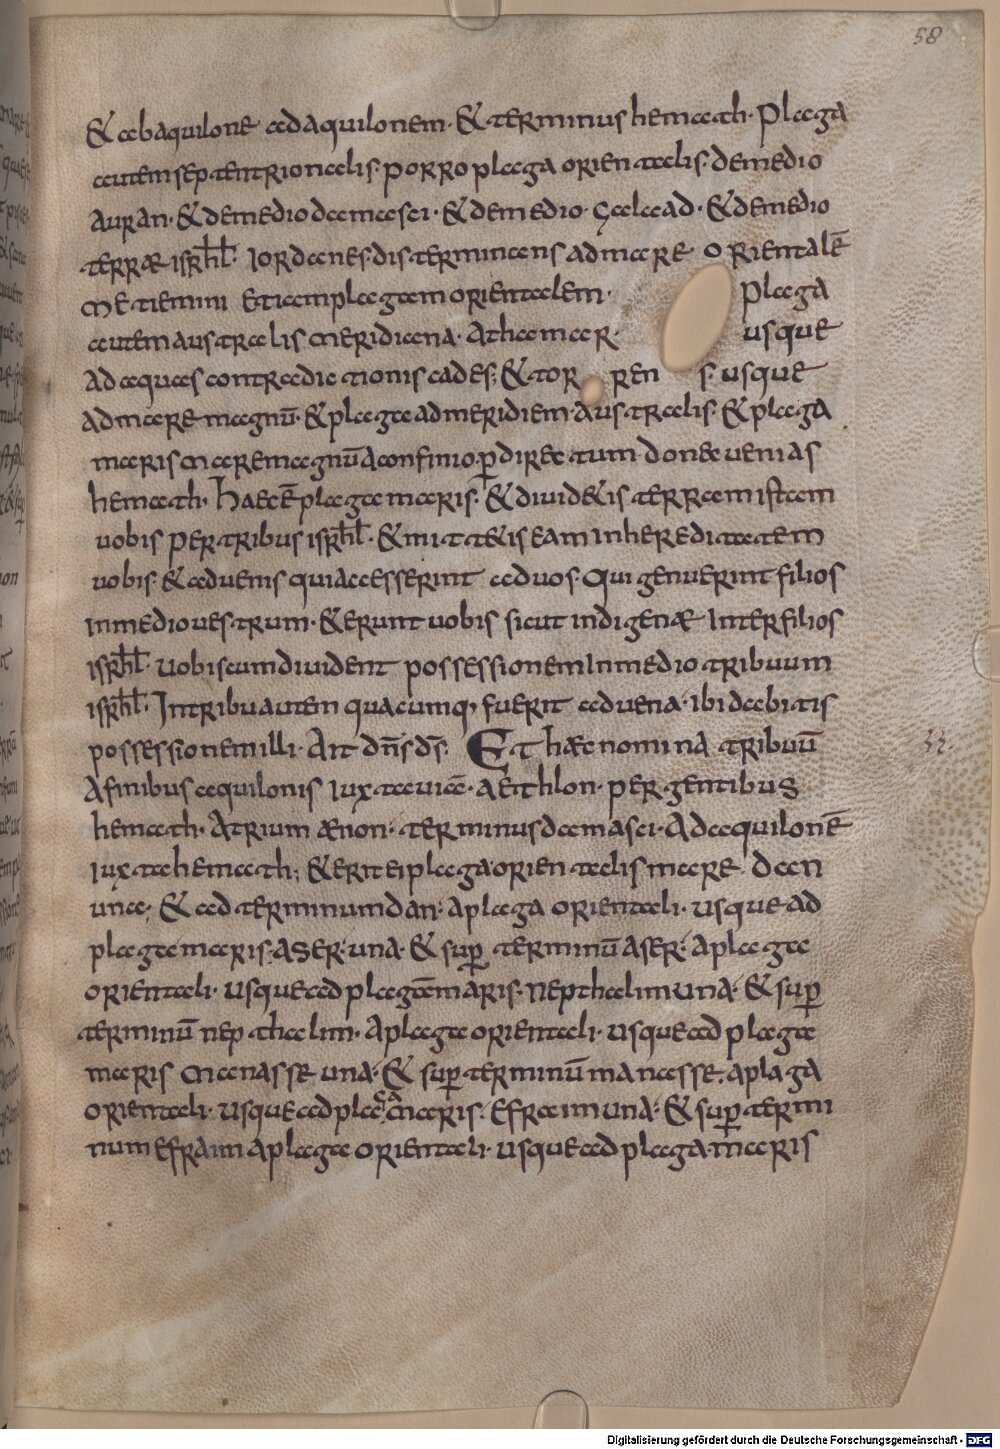 58
& abaquilone adaquilonem · & terminus hemath · Plaga
autem septentrionalis · porro plaga orientalis · demedio
auran · & demedio damasci · & demedio · galaad · & demedio
terræ isrhl̄ · Iordanes disterminans admare orientalē
metiemini etiam plagam orientalem · Plaga
autem australis meridiana · Athamar · usque
ad aquas contradictionis cades ; & torrens · usque
admare magnū · & plaga admeridiem · australis · & plaga
maris mare magnū aconfinio p̱ directum · donec venias
hemath · haec ē plaga maris · & divid&is terram istam
vobis per tribus isrhl̄ · & mitt&is eam inhereditatem
vobis · & advenis quiaccesserint advos · Qui genuerint filios
inmedio vestrum · & erunt vobis sicut indigenæ Inter filios
isrhl̄ · vobiscum divident possessionem Inmedio tribuum
isrhl̄ · Intribu autem quacumq, fuerit advena · ibi dabitis
possessionem illi · Ait dn̄s ds̄ · Et hæc nomina tribuū
Afinibus aquilonis iuxta viā · aeithlon · pergentibus
hemath · Atrium ænon · terminus damasci · Ad aquilonē
iuxta hemath ; & erit ei plaga orientalis mare dan
una ; & ad terminum dan · aplaga orientali · usque ad
plagam maris · aser · una · & sup̱ terminū aser · aplaga
orientali · usque ad plagam maris · nepthalim una · & sup̱
terminū nepthalim · aplaga orientali · usque ad plaga
maris manasse una · & sup̱ terminū manasse · aplaga
orientali · usque ad plagā maris · Efraim una · & sup̱ termi
num efraim aplaga orientali · usque ad plaga maris
Digitalisierung gefördert durch die Deutsche Forschungsgemeinschaft - DFG